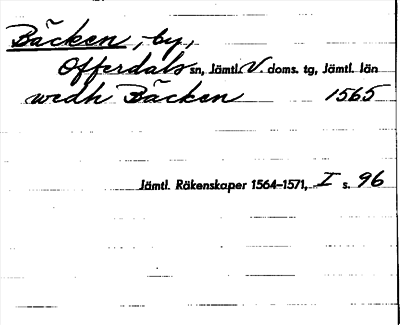 Bäcken, by,
Offerdals sn, Jämtl. V. doms. tg, Jämtl. län
wedh Bäcken 1565
Jämtl. Räkenskaper 1564-1571, I s. 96